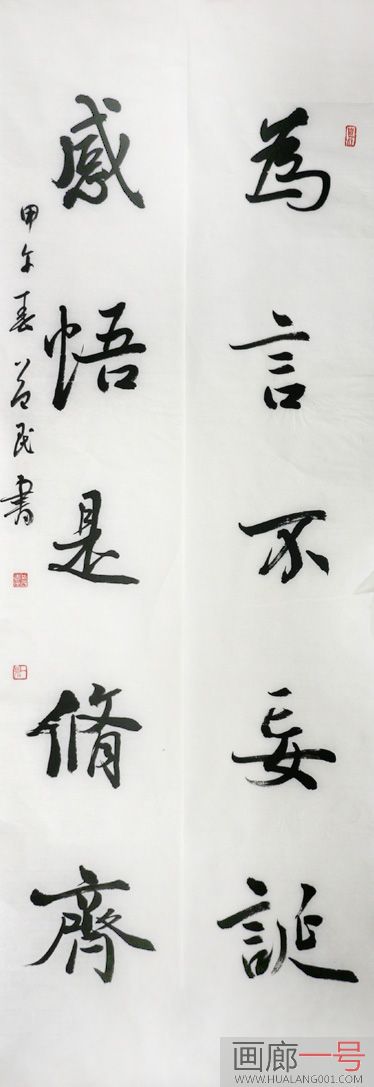 為言不妄誕
感悟是脩齊
甲午春益民書
画廊一号
WWW.HUALANG001.COM